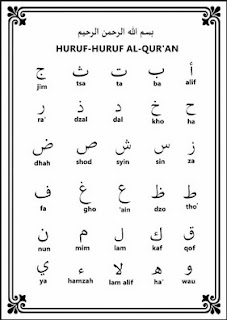 بسم الله الرحمن الرحيم
HURUF-HURUF AL-QUR'AN
أ ب ت ث ج
jim tsa ta ba alif
ح خ د ذ ر
ra' dzal dal kho ha
ز س ش ص ض
dhah shod syin sin za
ط ظ ع غ ف
fa gho 'ain dzo tho'
ق ك ل م ن
nun mim lam kaf qof
و ه لا ء ي
ya hamzah lam alif ha' wau